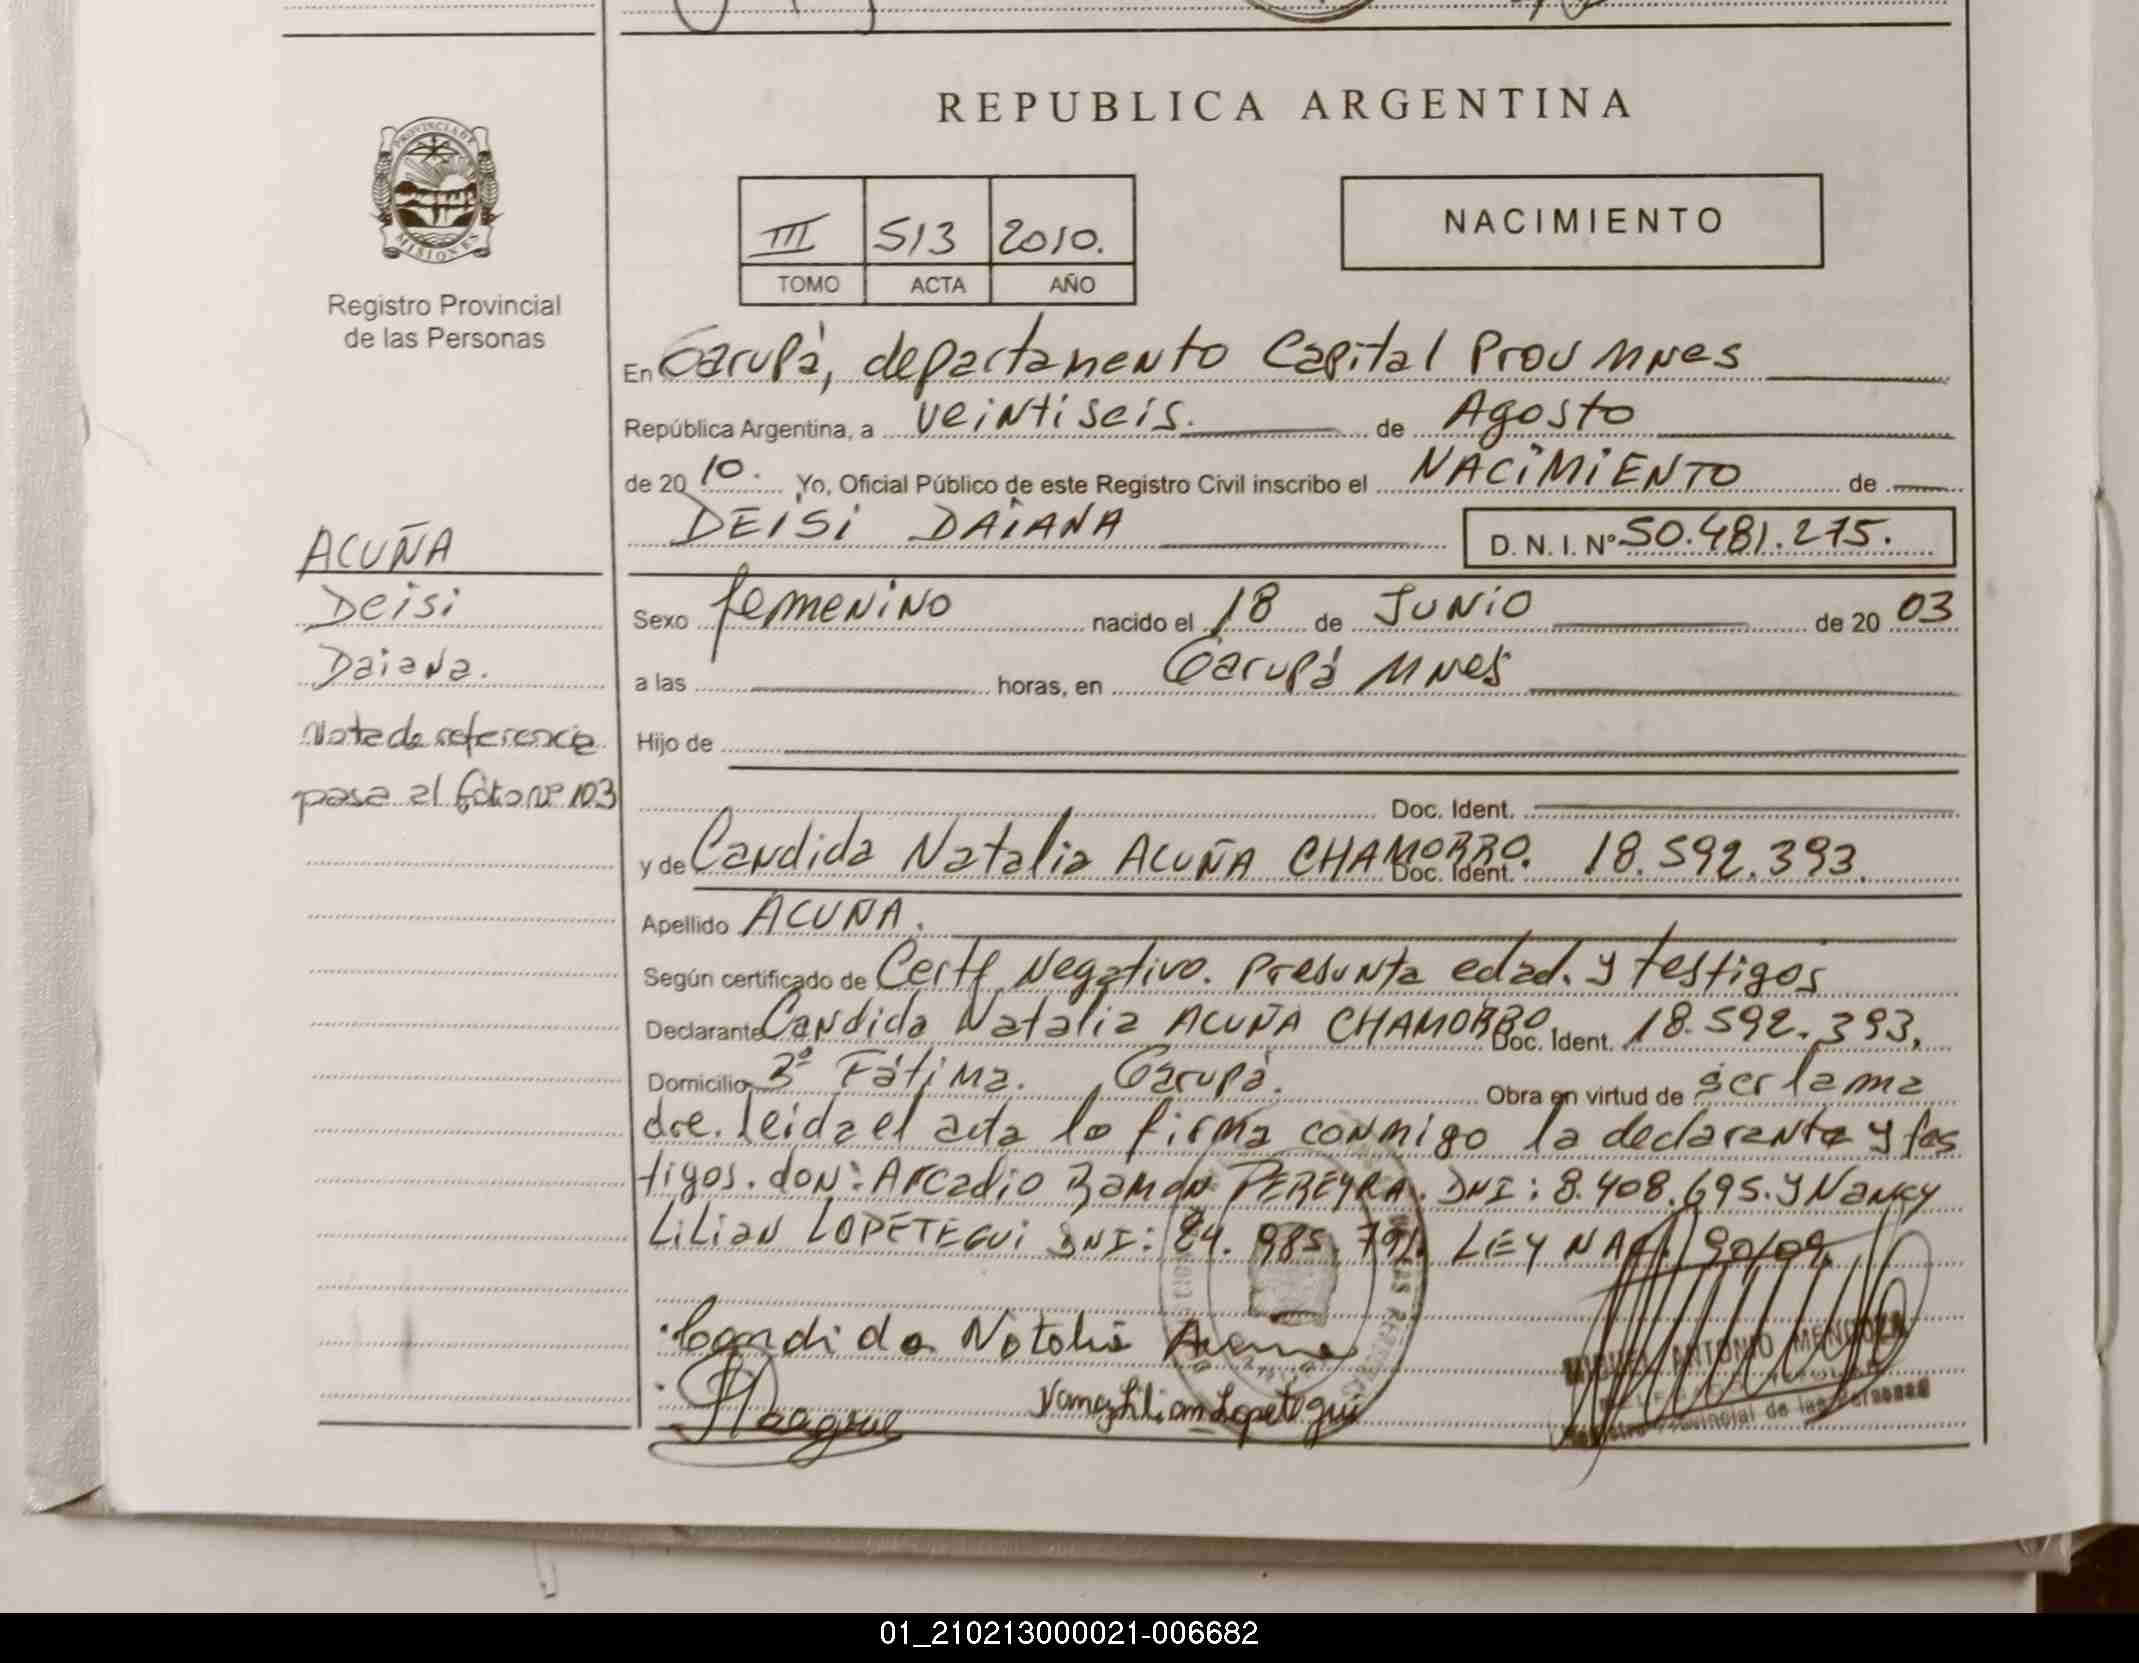 REPUBLICA ARGENTINA
PROVINCIA DE
MISIONES
Registro Provincial
de las Personas
III 513 2010.
TOMO ACTA AÑO
NACIMIENTO
En Garupá, departamento Capital Prov Mnes
República Argentina, a veintiseis. de Agosto
de 20 10. Yo, Oficial Público de este Registro Civil inscribo el NACIMIENTO de
DEISI DAIANA D. N. I. Nº 50.481.275.
ACUÑA
Deisi
Daiana.
Nota de referencia
pasa al folio Nº 103
Sexo femenino nacido el 18 de JUNIO de 20 03
a las horas, en Garupá Mnes
Hijo de
Doc. Ident.
y de Candida Natalia ACUÑA CHAMORRO. Doc. Ident. 18.592.393.
Apellido ACUÑA.
Según certificado de Certf Negativo. Presunta edad. y testigos
Declarante Candida Natalia ACUÑA CHAMORRO Doc. Ident. 18.592.393,
Domicilio Bº Fátima. Garupá. Obra en virtud de ser la ma
dre. leida el acta lo firma conmigo la declarante y tes
tigos. don: Arcadio Ramón PEREYRA. DNI: 8.408.695. y Nancy
Lilian LOPETEGUI DNI: 24.985. LEY NAC. 90/09.
Candida Natalia Acuña
Nancy Lilian Lopetegui
MIGUEL ANTONIO MENDOZA
Registro Provincial de las Personas
01_210213000021-006682